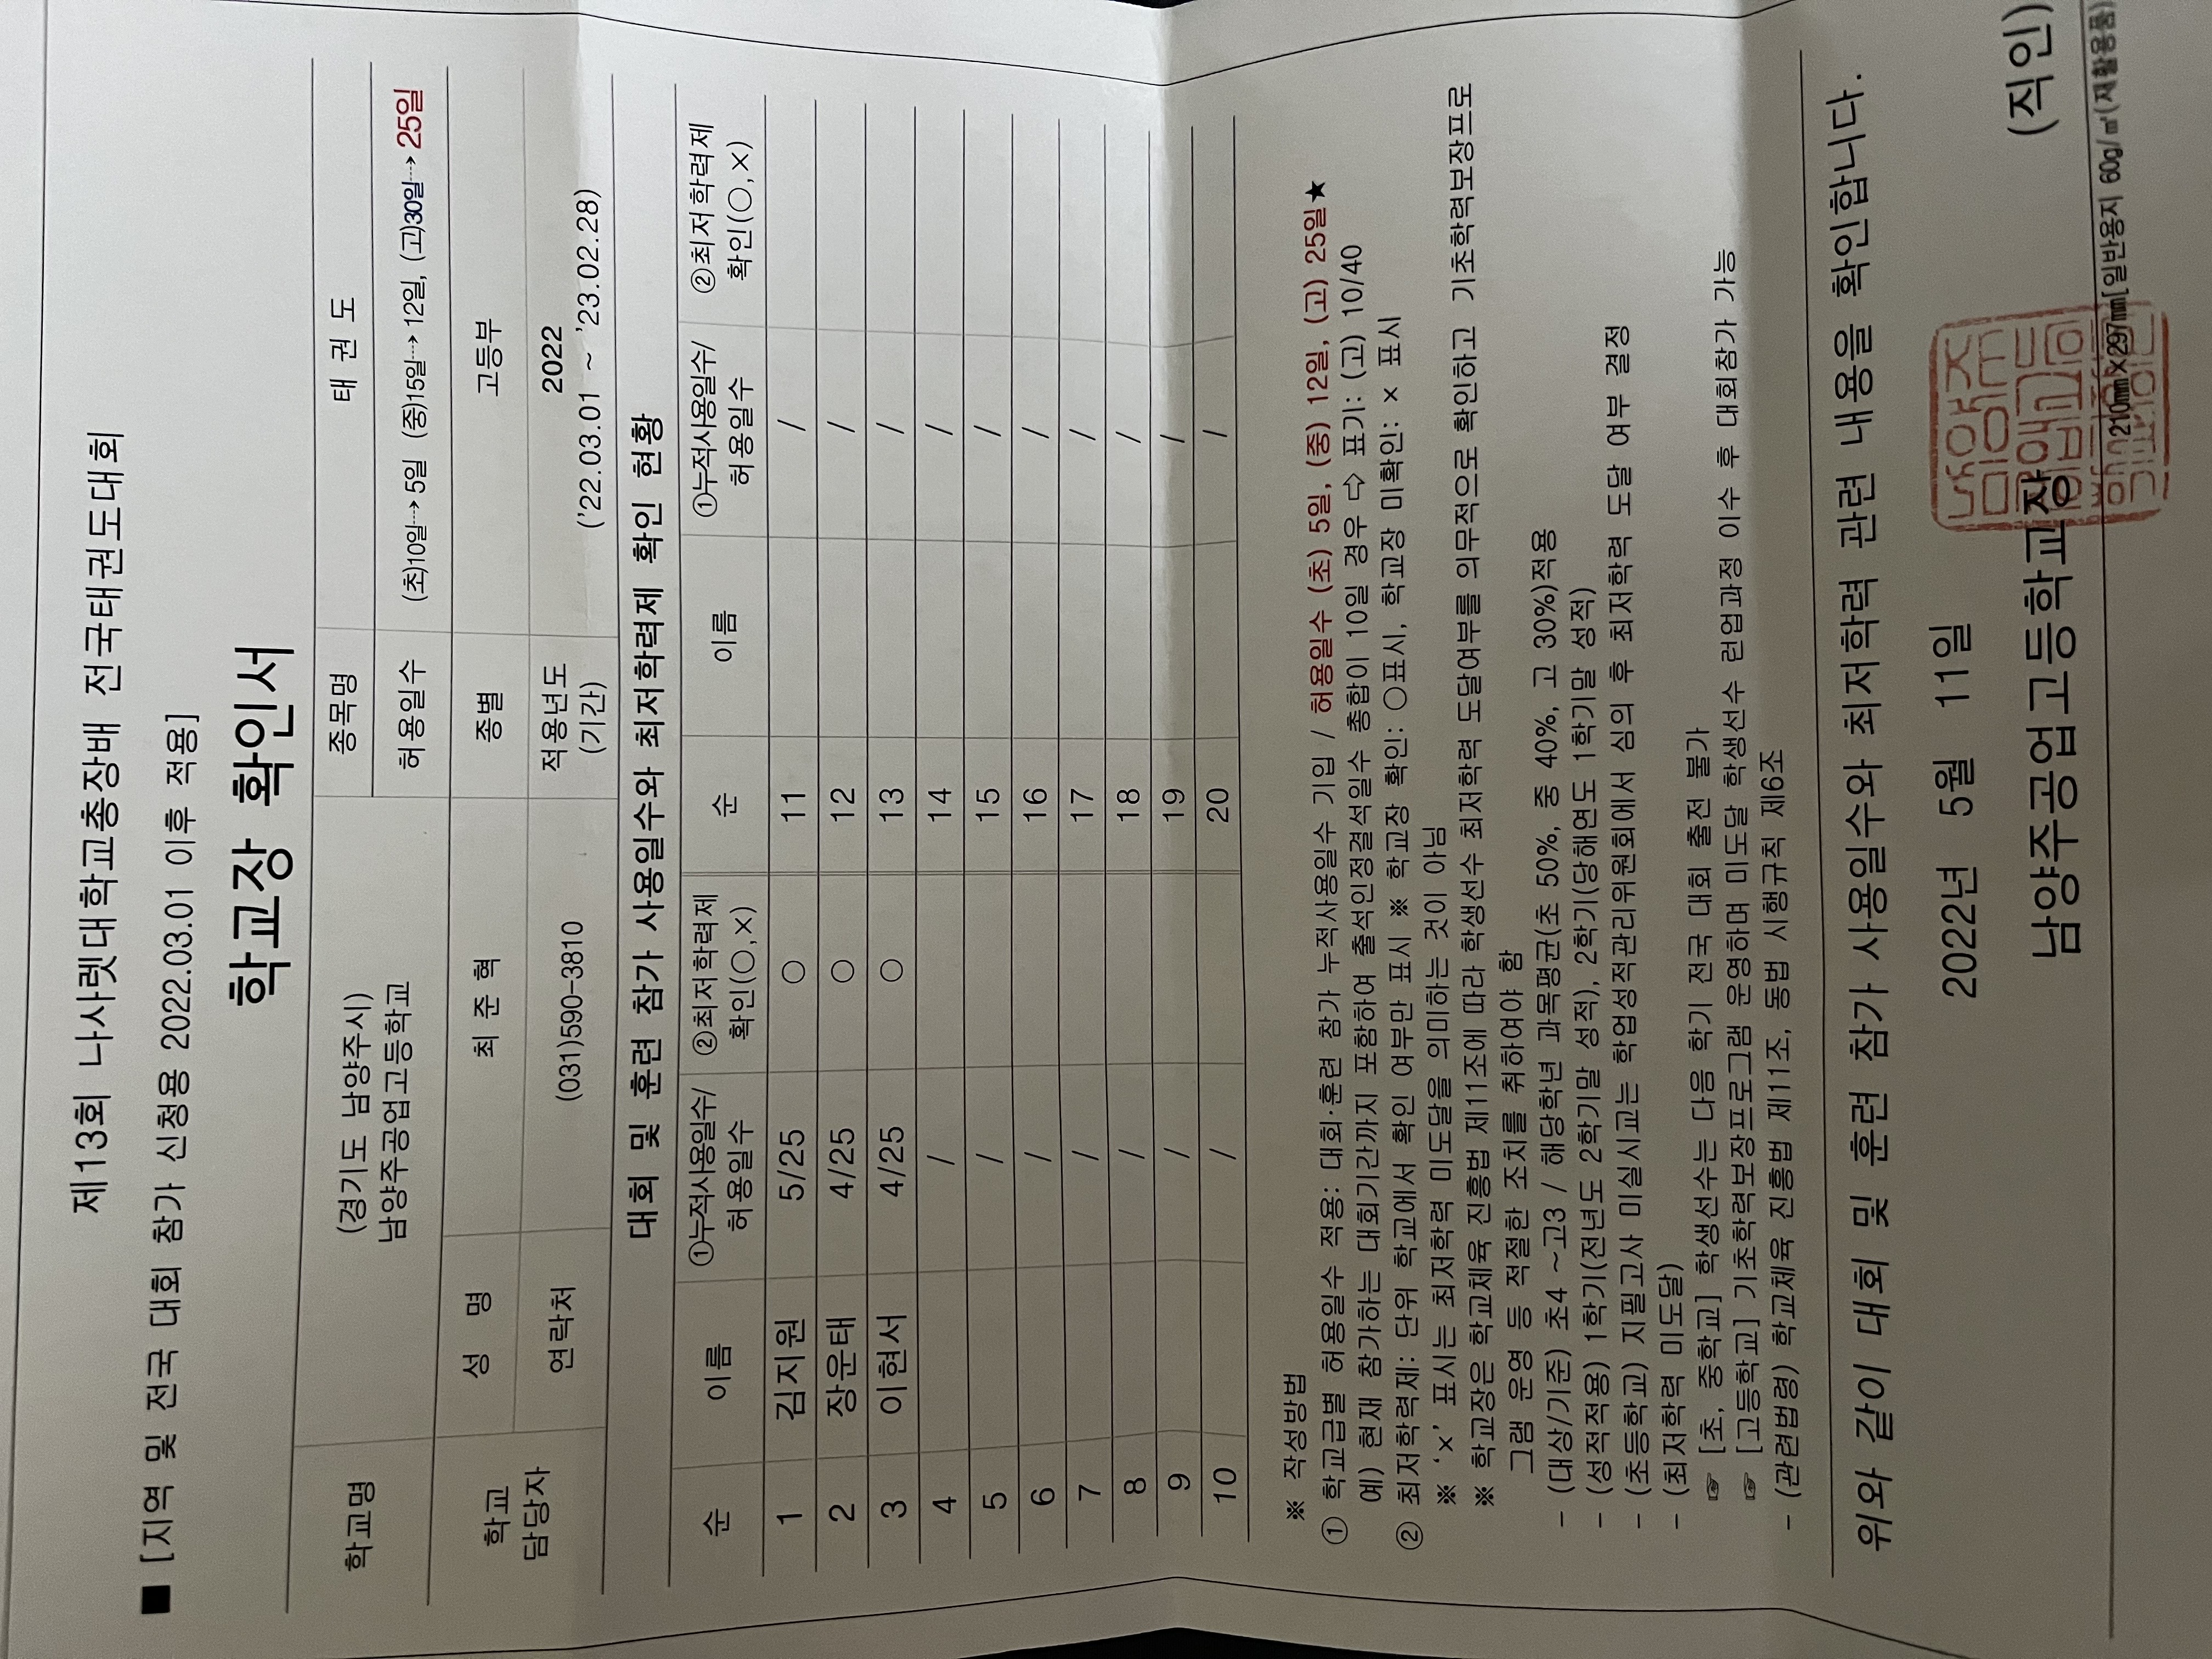 제13회 나사렛대학교총장배 전국태권도대회
■ [지역 및 전국 대회 참가 신청용 2022.03.01 이후 적용]
학교장 확인서
학교명
(경기도 남양주시)
남양주공업고등학교
종목명
태 권 도
허용일수
(초)10일→ 5일 (중)15일→ 12일, (고)30일→ 25일
학교
담당자
성 명
최 준 혁
종별
고등부
연락처
(031)590-3810
적용년도
(기간)
2022
('22.03.01 ~ '23.02.28)
대회 및 훈련 참가 사용일수와 최저학력제 확인 현황
순 이름 ①누적사용일수/허용일수 ②최저학력제 확인(○,×) 순 이름 ①누적사용일수/허용일수 ②최저학력제 확인(○,×)
1 김지원 5/25 ○ 11 /
2 장운태 4/25 ○ 12 /
3 이현서 4/25 ○ 13 /
4 / 14 /
5 / 15 /
6 / 16 /
7 / 17 /
8 / 18 /
9 / 19 /
10 / 20 /
※ 작성방법
① 학교급별 허용일수 적용: 대회·훈련 참가 누적사용일수 기입 / 허용일수 (초) 5일, (중) 12일, (고) 25일★
예) 현재 참가하는 대회기간까지 포함하여 출석인정결석일수 총합이 10일 경우 ⇨ 표기: (고) 10/40
② 최저학력제: 단위 학교에서 확인 여부만 표시 ※ 학교장 확인: ○표시, 학교장 미확인: × 표시
※ '×' 표시는 최저학력 미도달을 의미하는 것이 아님
※ 학교장은 학교체육 진흥법 제11조에 따라 학생선수 최저학력 도달여부를 의무적으로 확인하고 기초학력보장프로
그램 운영 등 적절한 조치를 취하여야 함
- (대상/기준) 초4 ~고3 / 해당학년 과목평균(초 50%, 중 40%, 고 30%)적용
- (성적적용) 1학기(전년도 2학기말 성적), 2학기(당해연도 1학기말 성적)
- (초등학교) 지필고사 미실시교는 학업성적관리위원회에서 심의 후 최저학력 도달 여부 결정
- (최저학력 미도달)
☞ [초, 중학교] 학생선수는 다음 학기 전국 대회 출전 불가
☞ [고등학교] 기초학력보장프로그램 운영하며 미도달 학생선수 런업과정 이수 후 대회참가 가능
- (관련법령) 학교체육 진흥법 제11조, 동법 시행규칙 제6조
위와 같이 대회 및 훈련 참가 사용일수와 최저학력 관련 내용을 확인합니다.
2022년 5월 11일
남양주공업고등학교장 (직인)
210㎜×297㎜[일반용지 60g/㎡(재활용품)